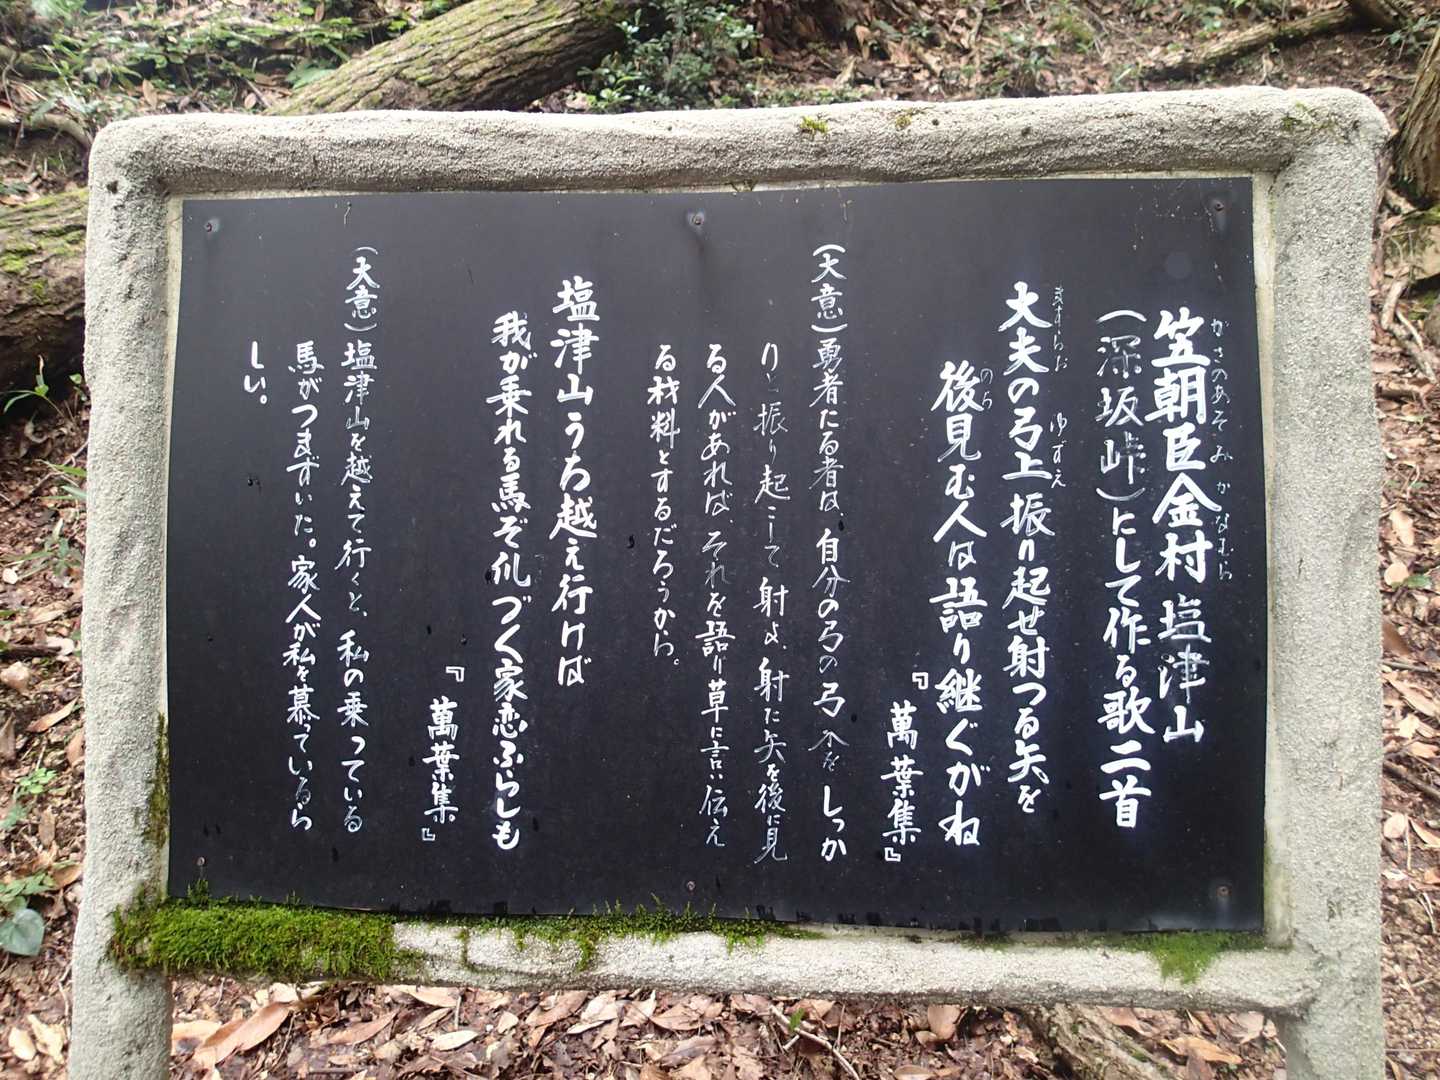 かさのあそみかなむら
笠朝臣金村 塩津山
(深坂峠)にして作る歌二首
ますらお ゆずえ
大夫の弓上振り起せ射つる矢を
のち
後見む人は語り継ぐがね
『萬葉集』
(大意)勇者たる者は、自分の弓の弓入を しっか
りと振り起こして射よ、射た矢を後に見
る人があれば、それを語り草に言い伝え
る材料とするだろうから。
塩津山うち越え行けば
我が乗れる馬ぞ爪づく家恋ふらしも
『萬葉集』
(大意)塩津山を越えて行くと、私の乗っている
馬がつまずいた。家人が私を慕っているら
しい。